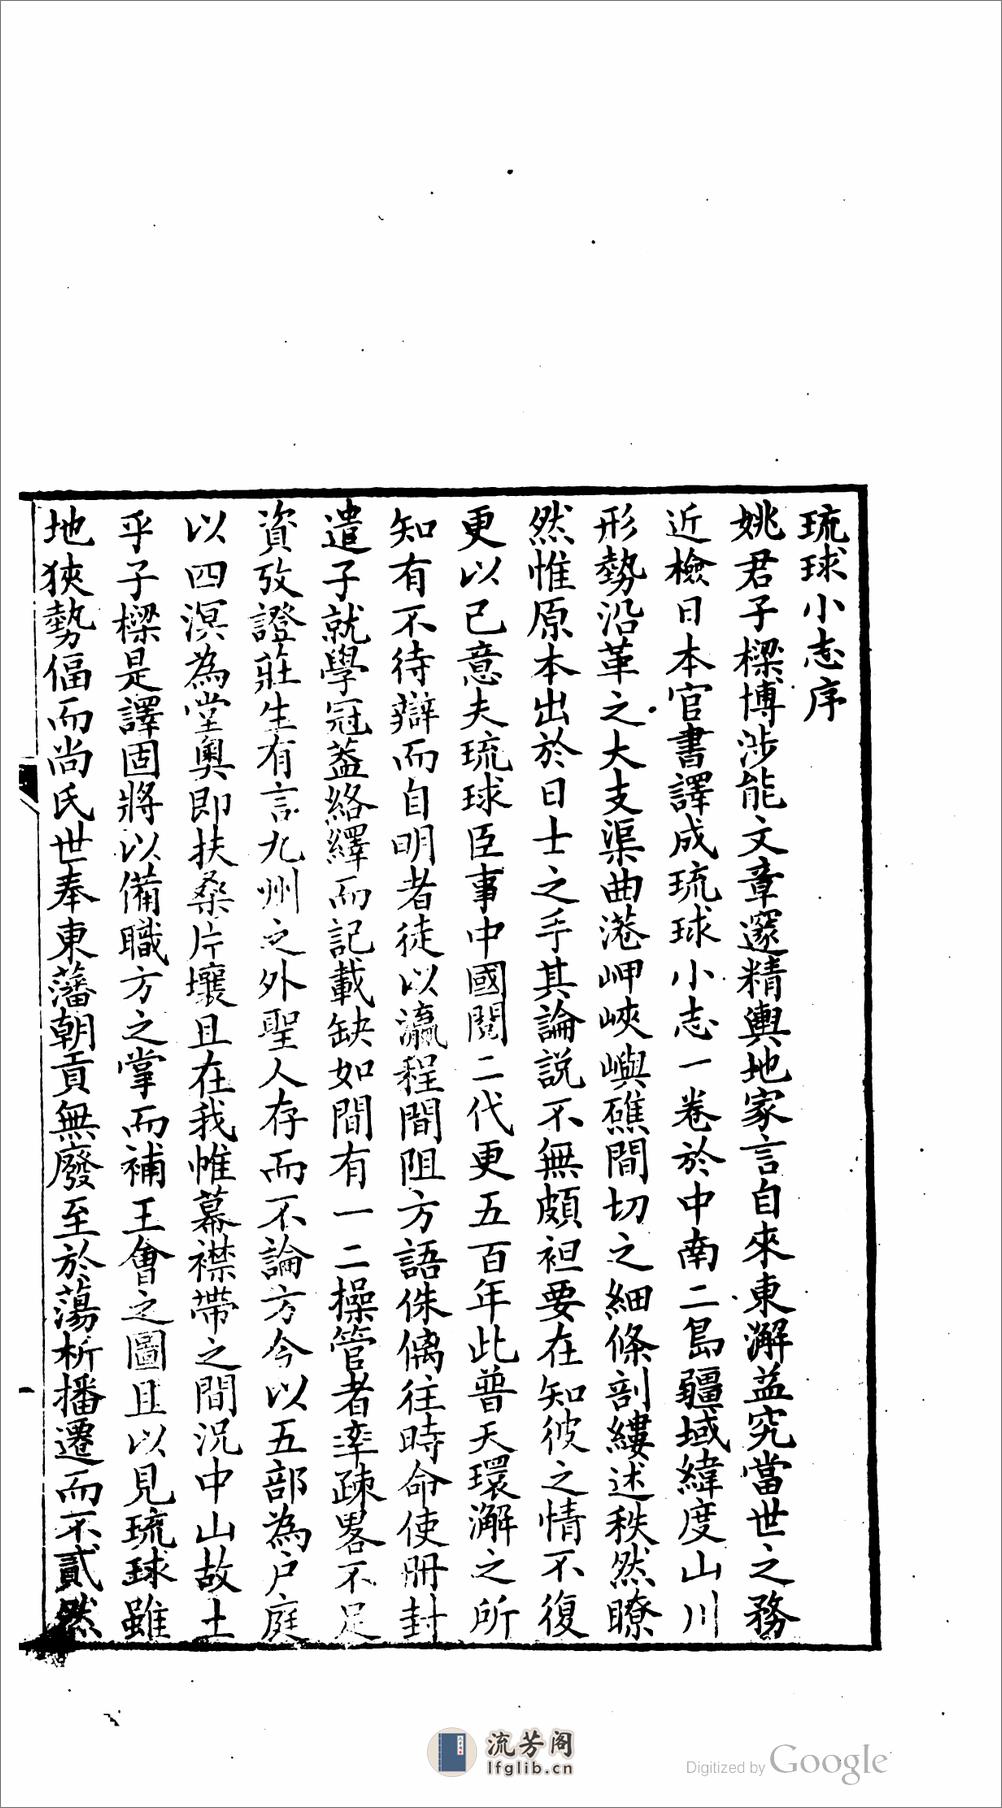 琉球小志序
姚君子樑博涉能文章邃精輿地家言自來東瀣益究當世之務
近檢日本官書譯成琉球小志一卷於中南二島疆域緯度山川
形勢沿革之大支渠曲港岬峽嶼礁間切之細條剖縷述秩然瞭
然惟原本出於日士之手其論説不無頗袒要在知彼之情不復
更以己意夫琉球臣事中國閱二代更五百年此普天環瀣之所
知有不待辯而自明者徒以瀛程間阻方語侏㒧往時命使冊封
遣子就學冠蓋絡繹而記載缺如間有一二操管者率疎畧不足
資攷證莊生有言九州之外聖人存而不論方今以五部為戶庭
以四溟為堂奧即扶桑片壤且在我帷幕襟帶之間況中山故土
乎子樑是譯固將以備職方之掌而補王會之圖且以見琉球雖
地狹勢偪而尚氏世奉東藩朝貢無廢至於蕩析播遷而不貳然
流芳阁
lfglib.cn
Digitized by Google